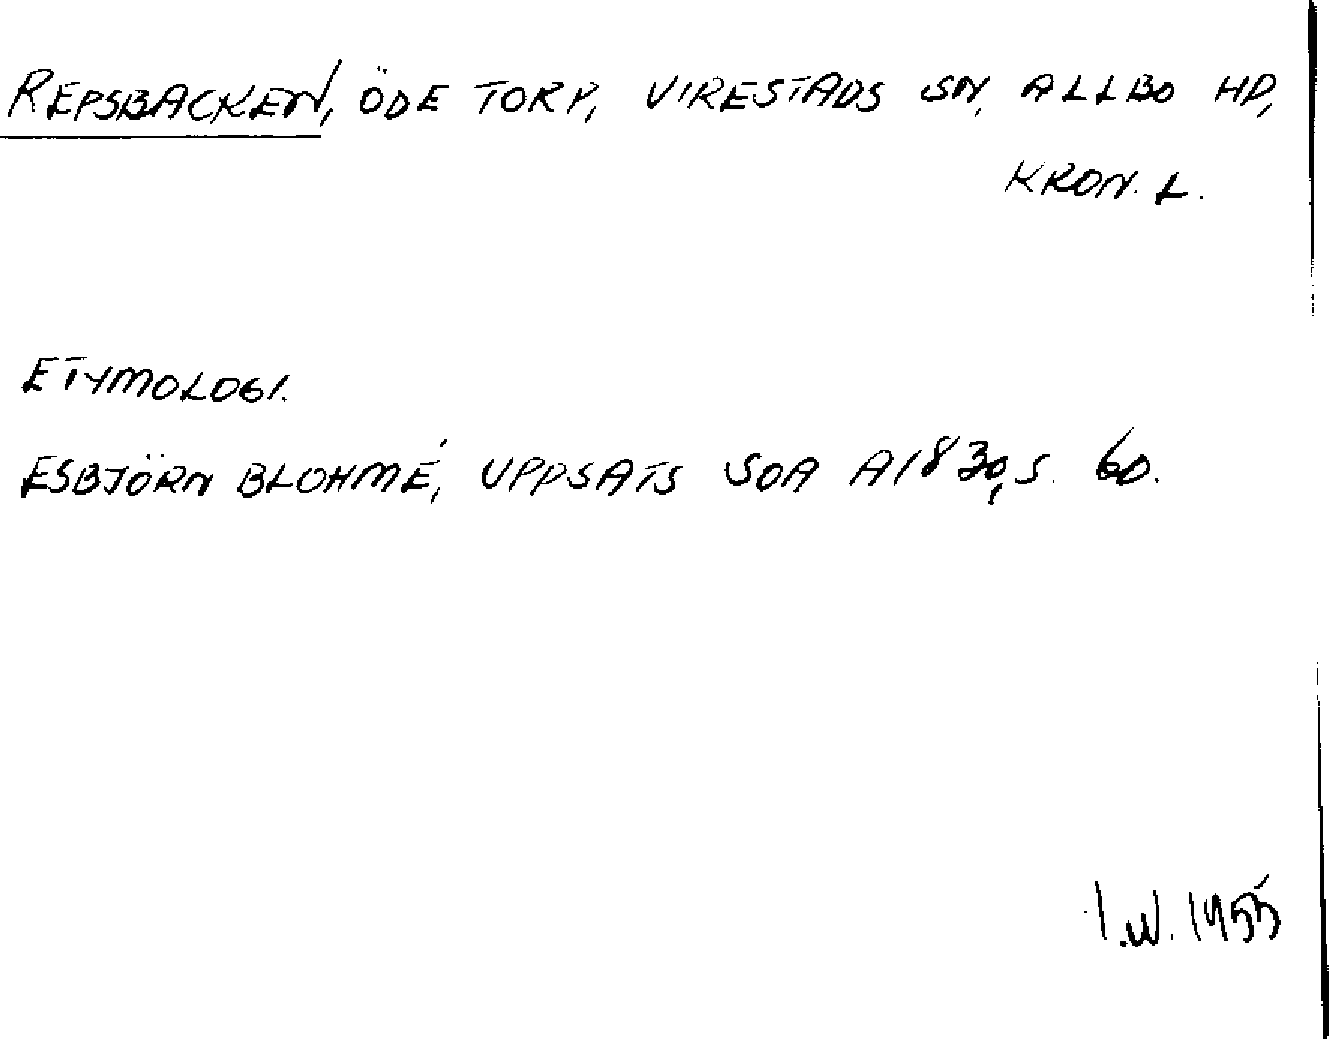 REPSBACKEN, ÖDE TORP, VIRESTADS SN, ALLBO HD,
KRON. L.
ETYMOLOGI.
ESBJÖRN BLOHMÉ, UPPSATS SOA A1830, S. 60.
I.W. 1955